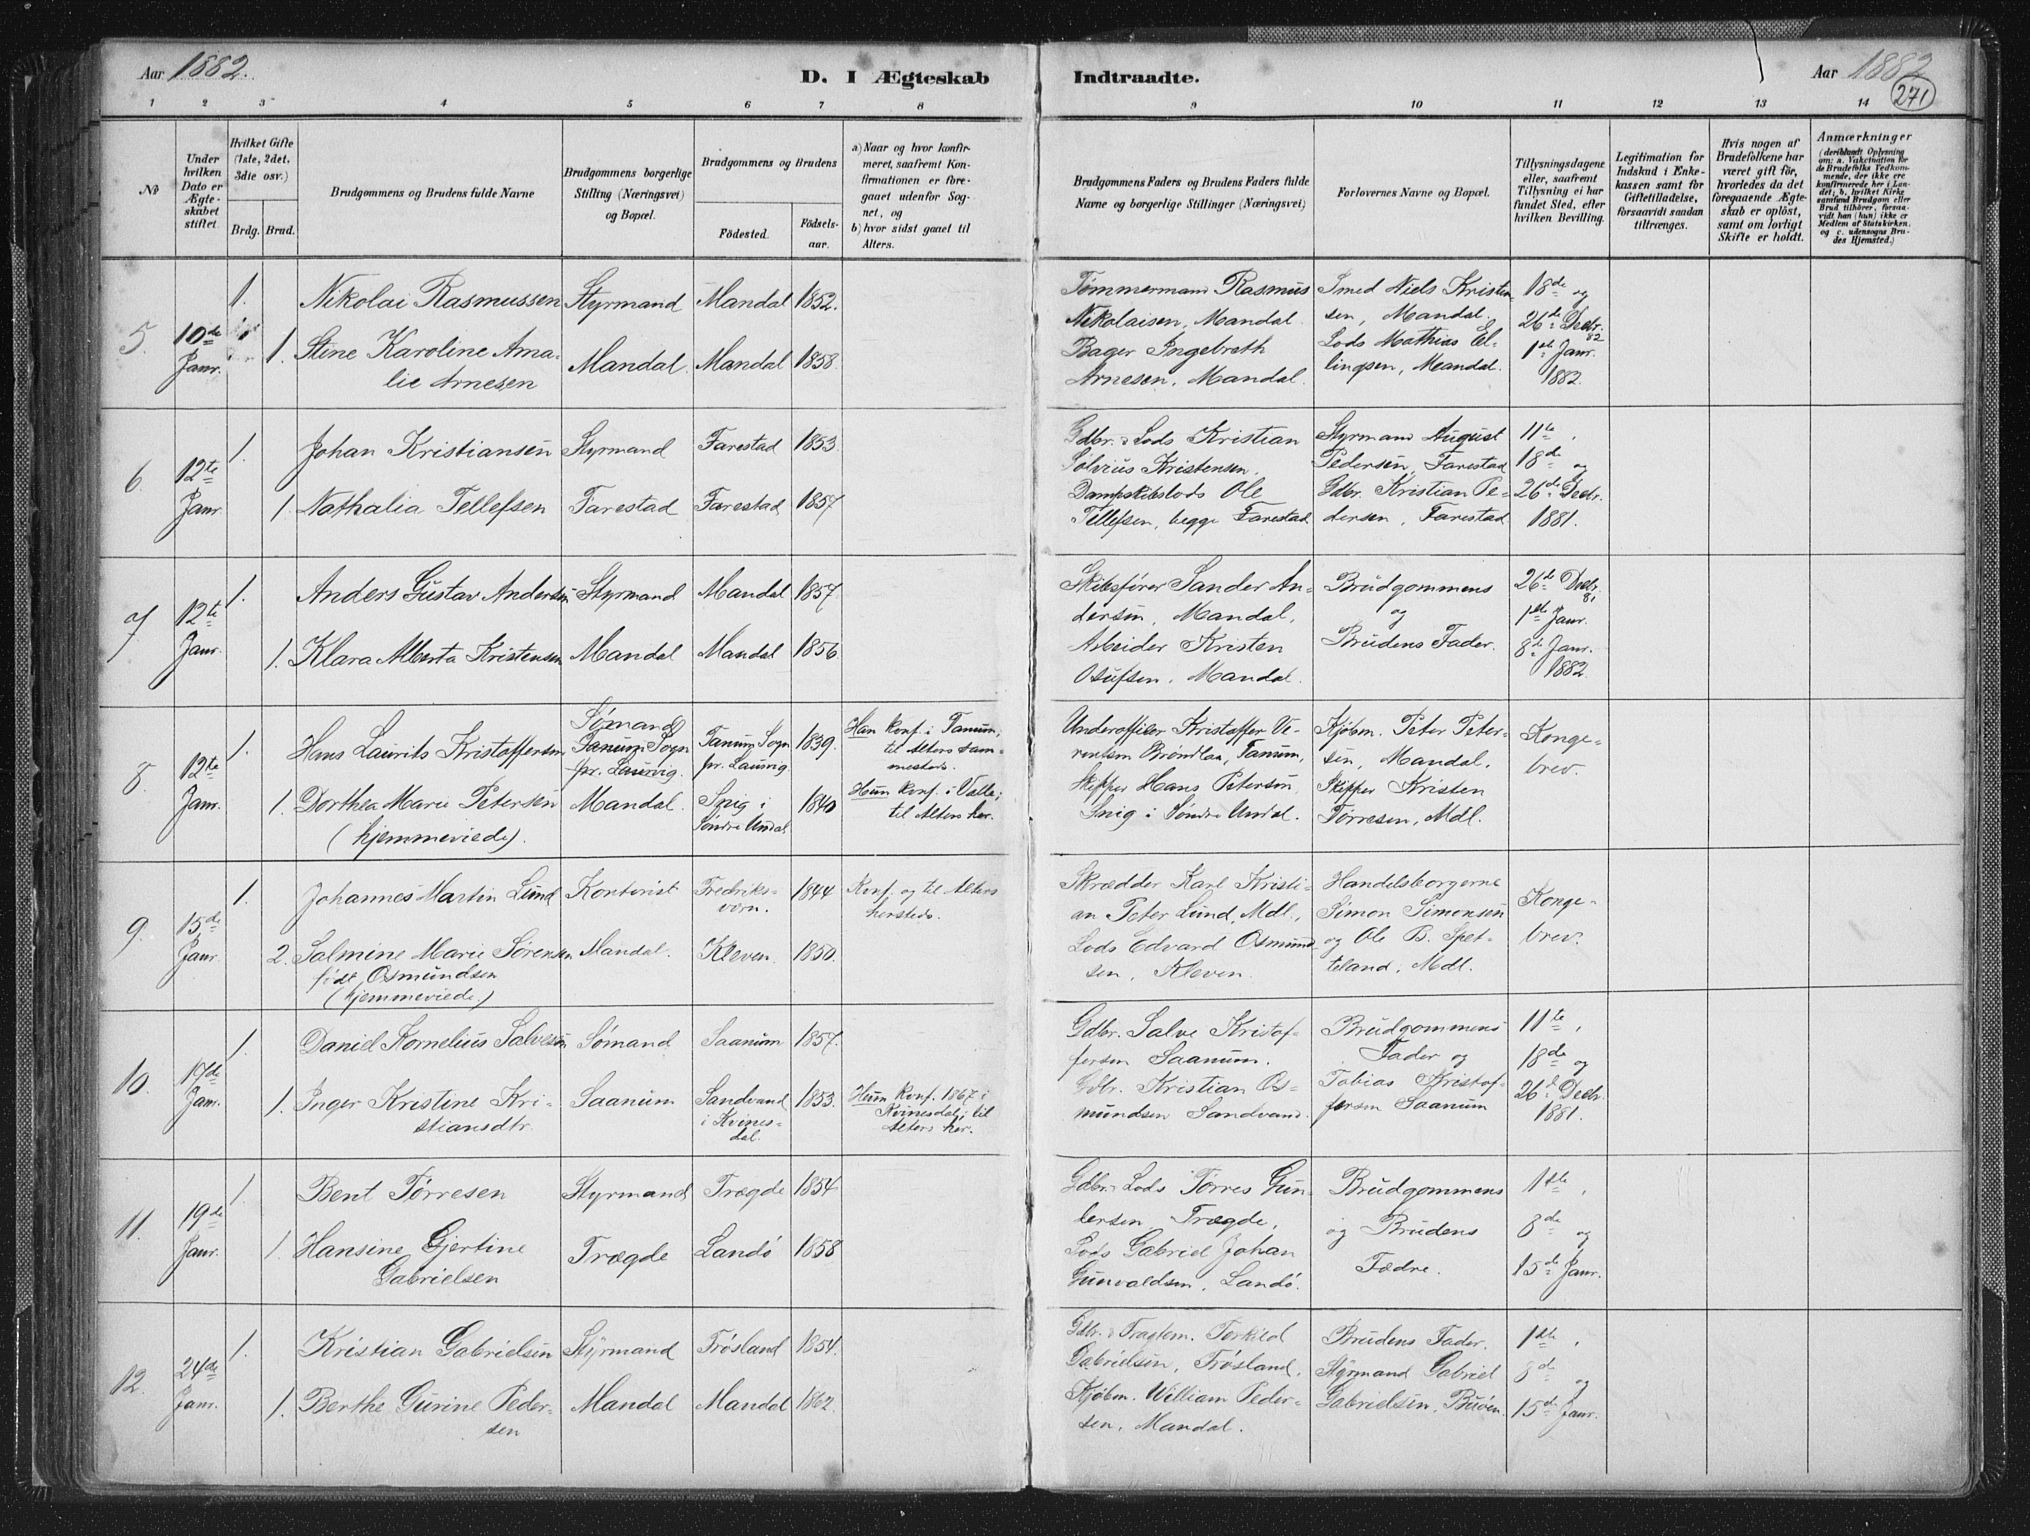 Aar 1882.
D. I Ægteskab Indtraadte.
Aar 1882
271
1 2 3 4 5 6 7 8 9 10 11 12 13 14
No
Under hvilken Dato er Ægteskabet stiftet.
Hvilket Gifte (1ste, 2det, 3die osv.)
Brdg. Brud.
Brudgommens og Brudens fulde Navne
Brudgommens borgerlige Stilling (Næringsvei) og Bopæl.
Brudgommens og Brudens
Fødested.
Fødselsaar.
a) Naar og hvor konfirmeret, saafremt Konfirmationen er foregaaet udenfor Sognet, og
b) hvor sidst gaaet til Alters.
Brudgommens Faders og Brudens Faders fulde Navne og borgerlige Stillinger (Næringsvei)
Forlovernes Navne og Bopæl.
Tillysningsdagene eller, saafremt Tillysning ei har fundet Sted, efter hvilken Bevilling.
Legitimation for Indskud i Enkekassen samt for Giftetilladelse, forsaavidt saadan tiltrænges.
Hvis nogen af Brudefolkene har været gift før, hvorledes da det foregaaende Ægteskab er opløst, samt om lovligt Skifte er holdt.
Anmærkninger
(deriblandt Oplysning om: a. Vakcination for de Brudefolks Vedkommende, der ikke ere konfirmerede her i Landet; b. hvilket Kirkesamfund Brudgom eller Brud tilhører, forsaavidt han (hun) ikke er Medlem af Statskirken, og c. udensogns Brudes Hjemsted.)
5. 10de Janr.
1. Nikolai Rasmussen Styrmand Mandal 1852.
1. Stine Karoline Ama-
lie Arnesen
Mandal. Mandal 1858.
Tømmermand Rasmus
Nikolaisen, Mandal.
Bager Ingebreth
Arnesen, Mandal.
Smed Niels Kristen-
sen, Mandal.
Lods Mathias El-
lingsen, Mandal.
18de og
26de Decbr.
1ste Janr.
1882.
6. 12te Janr.
1. Johan Kristiansen Styrmand Farestad 1853.
1. Nathalia Tellefsen Farestad Farestad 1857
Gdbr. & Lods Kristian
Sølvius Kristensen.
Dampskibslods Ole
Tellefsen, begge Farestad
Styrmand August
Pedersen, Farestad
Gdbr. Kristian Pe-
dersen, Farestad
11te,
18de og
26de Decbr.
1881.
7 12te Janr.
1. Anders Gustav Andersen Styrmand Mandal 1857.
1. Klara Alberta Kristensen Mandal Mandal 1856.
Skibsfører Sander An-
dersen, Mandal,
Arbeider Kristen
Osufsen, Mandal.
Brudgommens
og
Brudens Fader.
26de Decbr. 81
1ste Janr.
8de Janr.
1882.
8. 12te Janr.
1. Hans Laurits Kristoffersen
Sømand
Tanum Sogn
pr. Laurvig.
Tanum Sogn
pr. Laurvig.
1839.
Han konf. i Tanum,
til Alters sam-
mesteds.
1. Dorthea Marie Petersen
(hjemmeviede).
Mandal.
Snig i
Søndre Undal.
1840
Hun konf. i Valle;
til Alters her.
Underofficer Kristoffer Ve-
rentsen Brøndlan, Tanum,
Skipper Hans Petersen
Snig i Søndre Undal.
Kjøbm. Peter Peter-
sen, Mandal.
Skipper Kristen
Tørresen, Mdl.
Konge-
brev.
9. 15de Janr
1. Johannes Martin Lund Kontorist Fredriks-
vœrn. 1844 Konf. og til Alters
hersteds.
2. Salmine Marie Sørensen
født Osmundsen
(hjemmeviede.)
Mandal. Kleven. 1850.
Skrædder Karl Kristi-
an Peter Lund, Mdl.,
Lods Edvard Osmund-
sen, Kleven.
Handelsborgerne
Simon Simonsen
og Ole B. Spet-
teland, Mdl.
Konge-
brev.
10. 17de Janr.
1. Daniel Kornelius Salvesen Sømand Saanum 1857.
1. Inger Kristine Kri-
stiansdtr.
Saanum
Sandvand
i Kvines-
dal.
1853.
Hun konf. 1867 i
Kvinesdal; til
Alters her.
Gdbr. Salve Kristof-
fersen Saanum.
Gdbr. Kristian Os-
mundsen Sandvand.
Brudgommens
Fader og
Tobias Kristof-
fersen Saanum
11te,
18de og
26d Decbr.
1881.
11. 19de Janr.
1. Bent Tørresen Styrmand Trægde 1854.
1. Hansine Gjertine
Gabrielsen
Trægde Landø 1858
Gdbr. & Lods Tørres Gun-
dersen Trægde,
Lods Gabriel Johan
Gunvaldsen, Landø.
Brudgommens
og Brudens
Fædre.
1ste,
8de og
15de Janr.
12. 24de Janr.
1. Kristian Gabrielsen Styrmand Frøsland 1854.
1. Berthe Gurine Peder-
sen
Mandal Mandal 1862.
Gdbr. & Fragtem. Terkild
Gabrielsen, Frøsland.
Kjøbm. William Peder-
sen, Mandal.
Brudens Fader.
Styrmand Gabriel
Gabrielsen, Buøen.
1ste,
8d og
15de Janr.